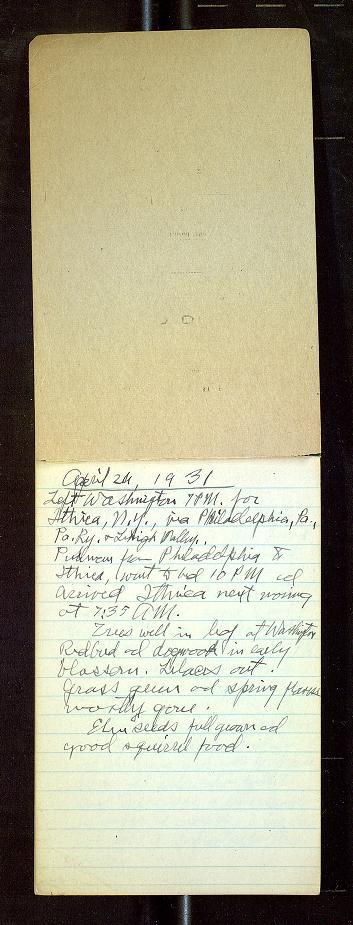 April 24, 1931
Left Washington 7 P.M. for
Ithica, N.Y., via Philadelphia, Pa.,
Pa. Ry. & Lehigh Valley.
Pullman from Philadelphia to
Ithica, went to bed 10 PM ad
arrived Ithica next morning
at 7:35 A.M.
Trees well in leaf at Washington
Redbud ad dogwood in early
blossom. Lilacs out.
Grass green ad spring flowers
mostly gone.
Elm seeds full grown ad
good squirrel food.